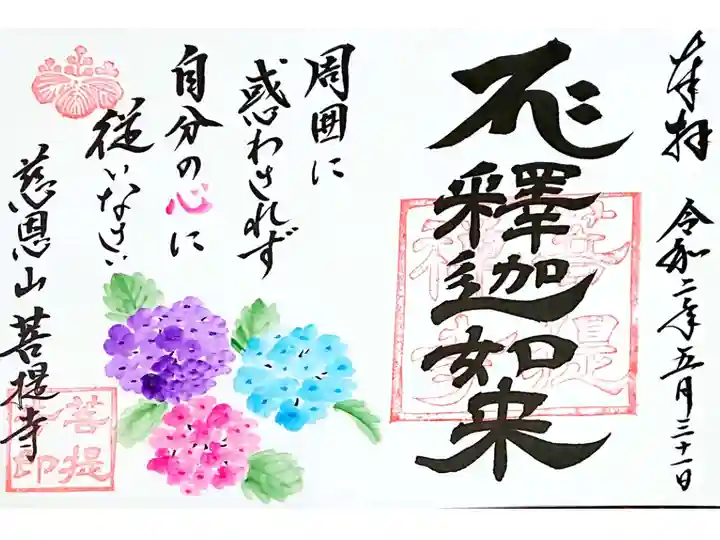 奉拝　令和二年五月三十一日
釋迦如来
菩提
禅寺
周囲に
惑わされず
自分の心に
従いなさい
慈恩山　菩提寺
菩提
印